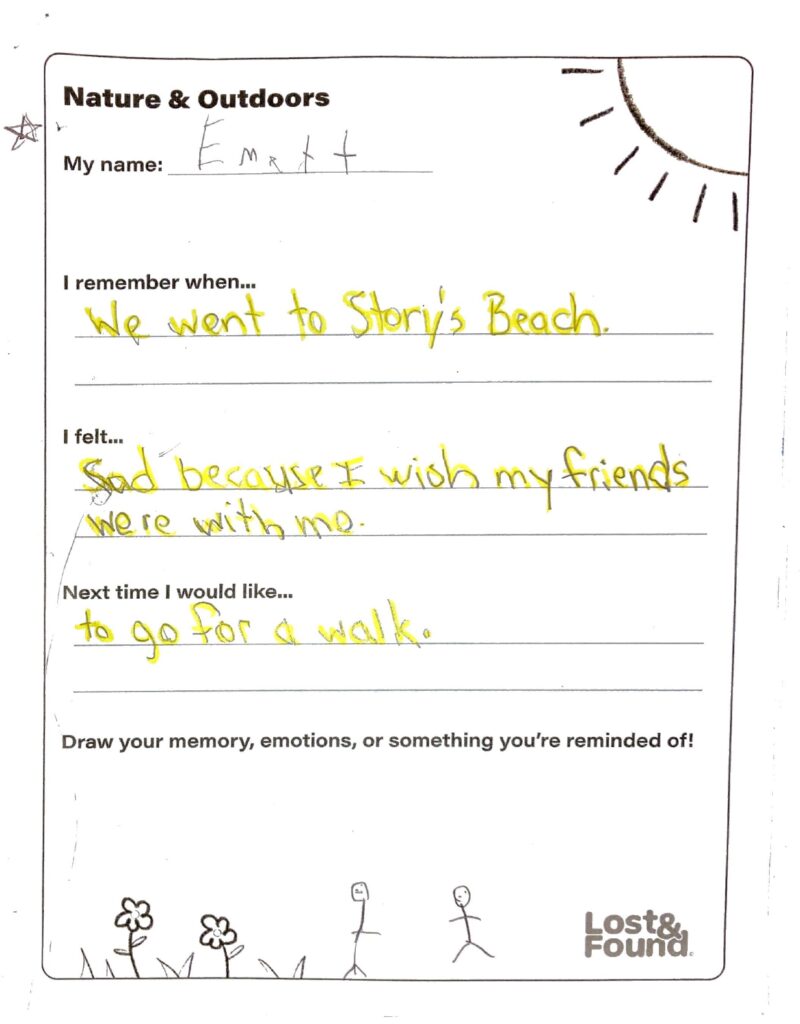 Nature & Outdoors
My name: Emett
I remember when...
We went to Story's Beach.
I felt...
Sad because I wish my friends
were with me.
Next time I would like...
to go for a walk.
Draw your memory, emotions, or something you're reminded of!
Lost&
Found